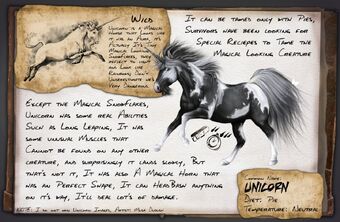 Wild
Unicorn is a Magical
Horse that Looks like
it was an Aura, it's
Actually it's Tiny
Magical looking
Snowflakes, they
reflect the light
and Look like
Rainbow! Don't
Underestimate he's
Very Dangerous
It can be tamed only with Pies,
Survivors have been looking for
Special Reciepes to Tame the
Magical Looking Creature
Except the Magical Snowflakes,
Unicorn was some real Abilities
Such as Long Leaping, It was
some unusual Muscles that
Cannot be found on any other
creature, and surprisingly it lands slowly, But
that's not it, It was also A Magical Horn that
was an Perfect Shape, It can HeadBash anything
on it's way, It'll deal lot's of damage.
Common Name:
Unicorn
Diet: Pie
Temperature: Neutral
I do not own Unicorn Images,